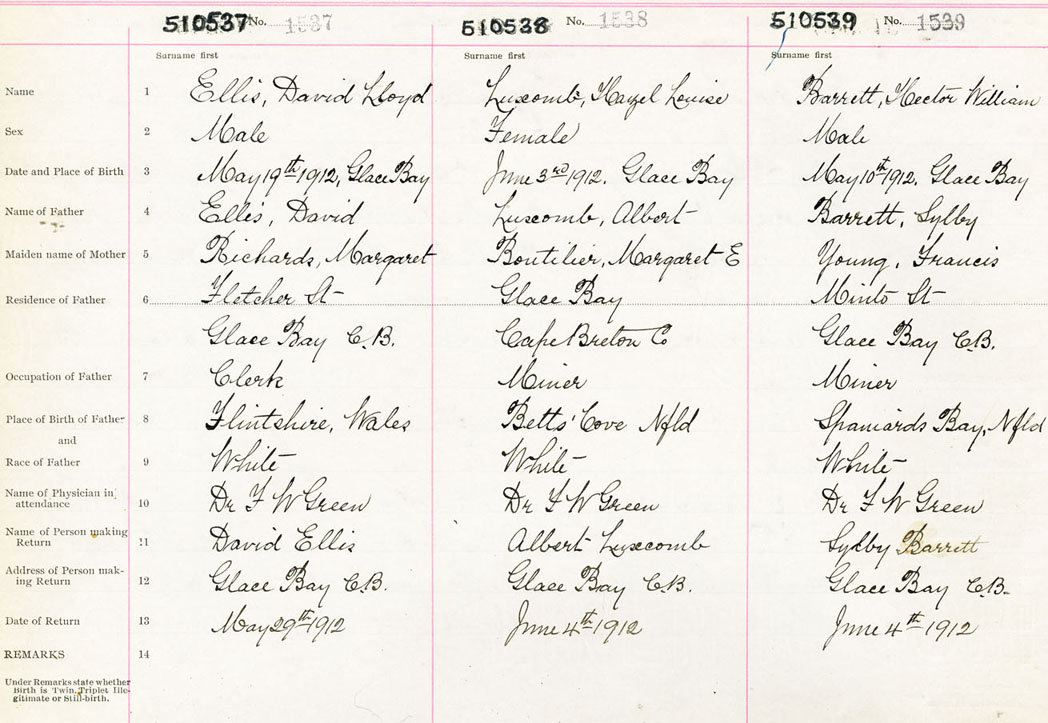 510537 No. 1537 510538 No. 1538 510539 No. 1539
Surname first Surname first Surname first
Name 1 Ellis, David Lloyd Luscomb, Hazel Louise Barrett, Hector William
Sex 2 Male Female Male
Date and Place of Birth 3 May 19th 1912, Glace Bay June 3rd 1912. Glace Bay May 10th 1912. Glace Bay
Name of Father 4 Ellis, David Luscomb, Albert Barrett, Sylby
Maiden name of Mother 5 Richards, Margaret Boutilier, Margaret E Young, Francis
Residence of Father 6 Fletcher St Glace Bay Minto St
Glace Bay C.B. Cape Breton Co Glace Bay C.B.
Occupation of Father 7 Clerk Miner Miner
Place of Birth of Father 8 Flintshire, Wales Betts' Cove Nfld Spaniards Bay, Nfld
and
Race of Father 9 White White White
Name of Physician in
attendance 10 Dr F W Green Dr F W Green Dr F W Green
Name of Person making
Return 11 David Ellis Albert Luscomb Sylby Barrett
Address of Person mak-
ing Return 12 Glace Bay C.B. Glace Bay C.B. Glace Bay C.B.
Date of Return 13 May 29th 1912 June 4th 1912 June 4th 1912
REMARKS 14
Under Remarks state whether
Birth is Twin, Triplet Ille-
gitimate or Still-birth.